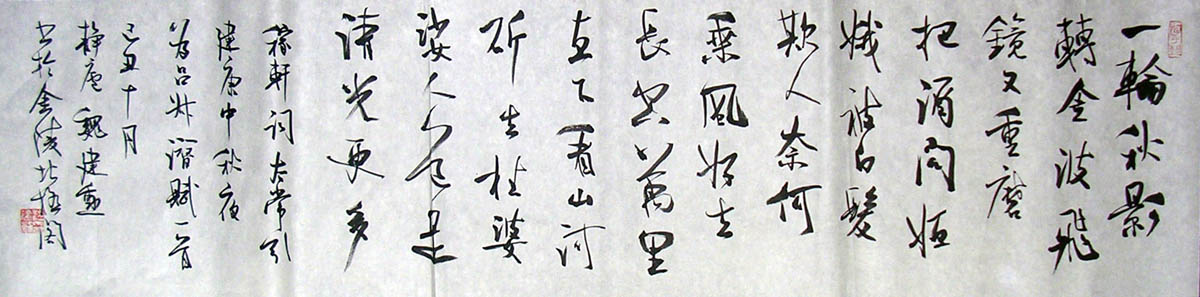 一輪秋影
轉金波飛
鏡又重磨
把酒問姮
娥被白髮
欺人奈何
乘風好去
長空萬里
直下看山河
斫去桂婆
娑人々道是
清光更多
稼軒詞太常引
建康中秋夜
為呂叔潛賦一首
己丑十月
魏建
書於金陵北極閣